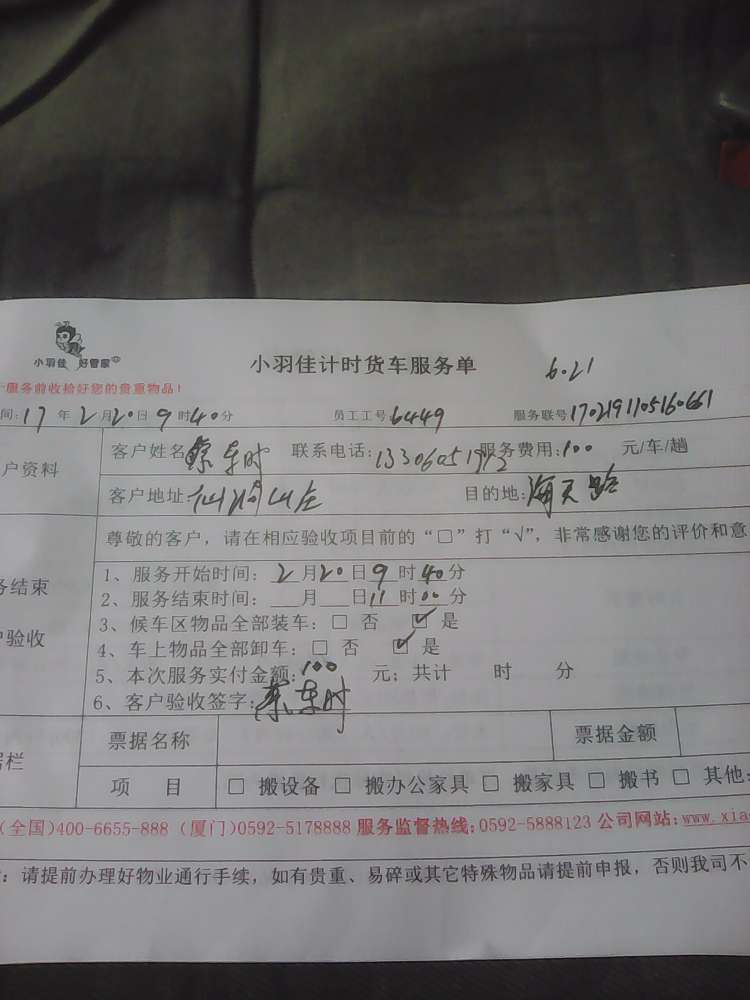 小羽佳 好管家
小羽佳计时货车服务单 6.21
服务前收捡好您的贵重物品!
间:17年2月20日9时40分 员工工号 6449 服务联号 1702191105160661
户资料 客户姓名 车时 联系电话: 服务费用:100 元/车/趟
客户地址: 仙 山庄 目的地: 海天路
尊敬的客户,请在相应验收项目前的“□”打“√”,非常感谢您的评价和意
务结束
验收
1、服务开始时间: 2月20日9时40分
2、服务结束时间: 月 日11时00分
3、候车区物品全部装车: □ 否 ☑ 是
4、车上物品全部卸车: □ 否 ☑ 是
5、本次服务实付金额: 100 元; 共计 时 分
6、客户验收签字: 车时
据栏 票据名称 票据金额
项 目 □ 搬设备 □ 搬办公家具 □ 搬家具 □ 搬书 □ 其他:
(全国)400-6655-888 (厦门)0592-5178888 服务监督热线:0592-5888123 公司网站:www.xia
:请提前办理好物业通行手续,如有贵重、易碎或其它特殊物品请提前申报,否则我司不